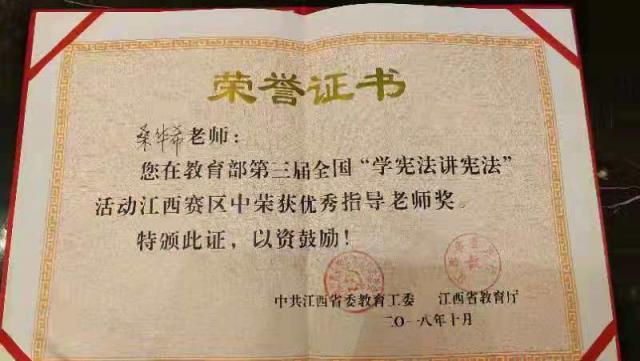 荣誉证书
桑华希老师：
您在教育部第三届全国“学宪法讲宪法”
活动江西赛区中荣获优秀指导老师奖。
特颁此证，以资鼓励！
中共江西省委教育工委 江西省教育厅
二〇一八年十月